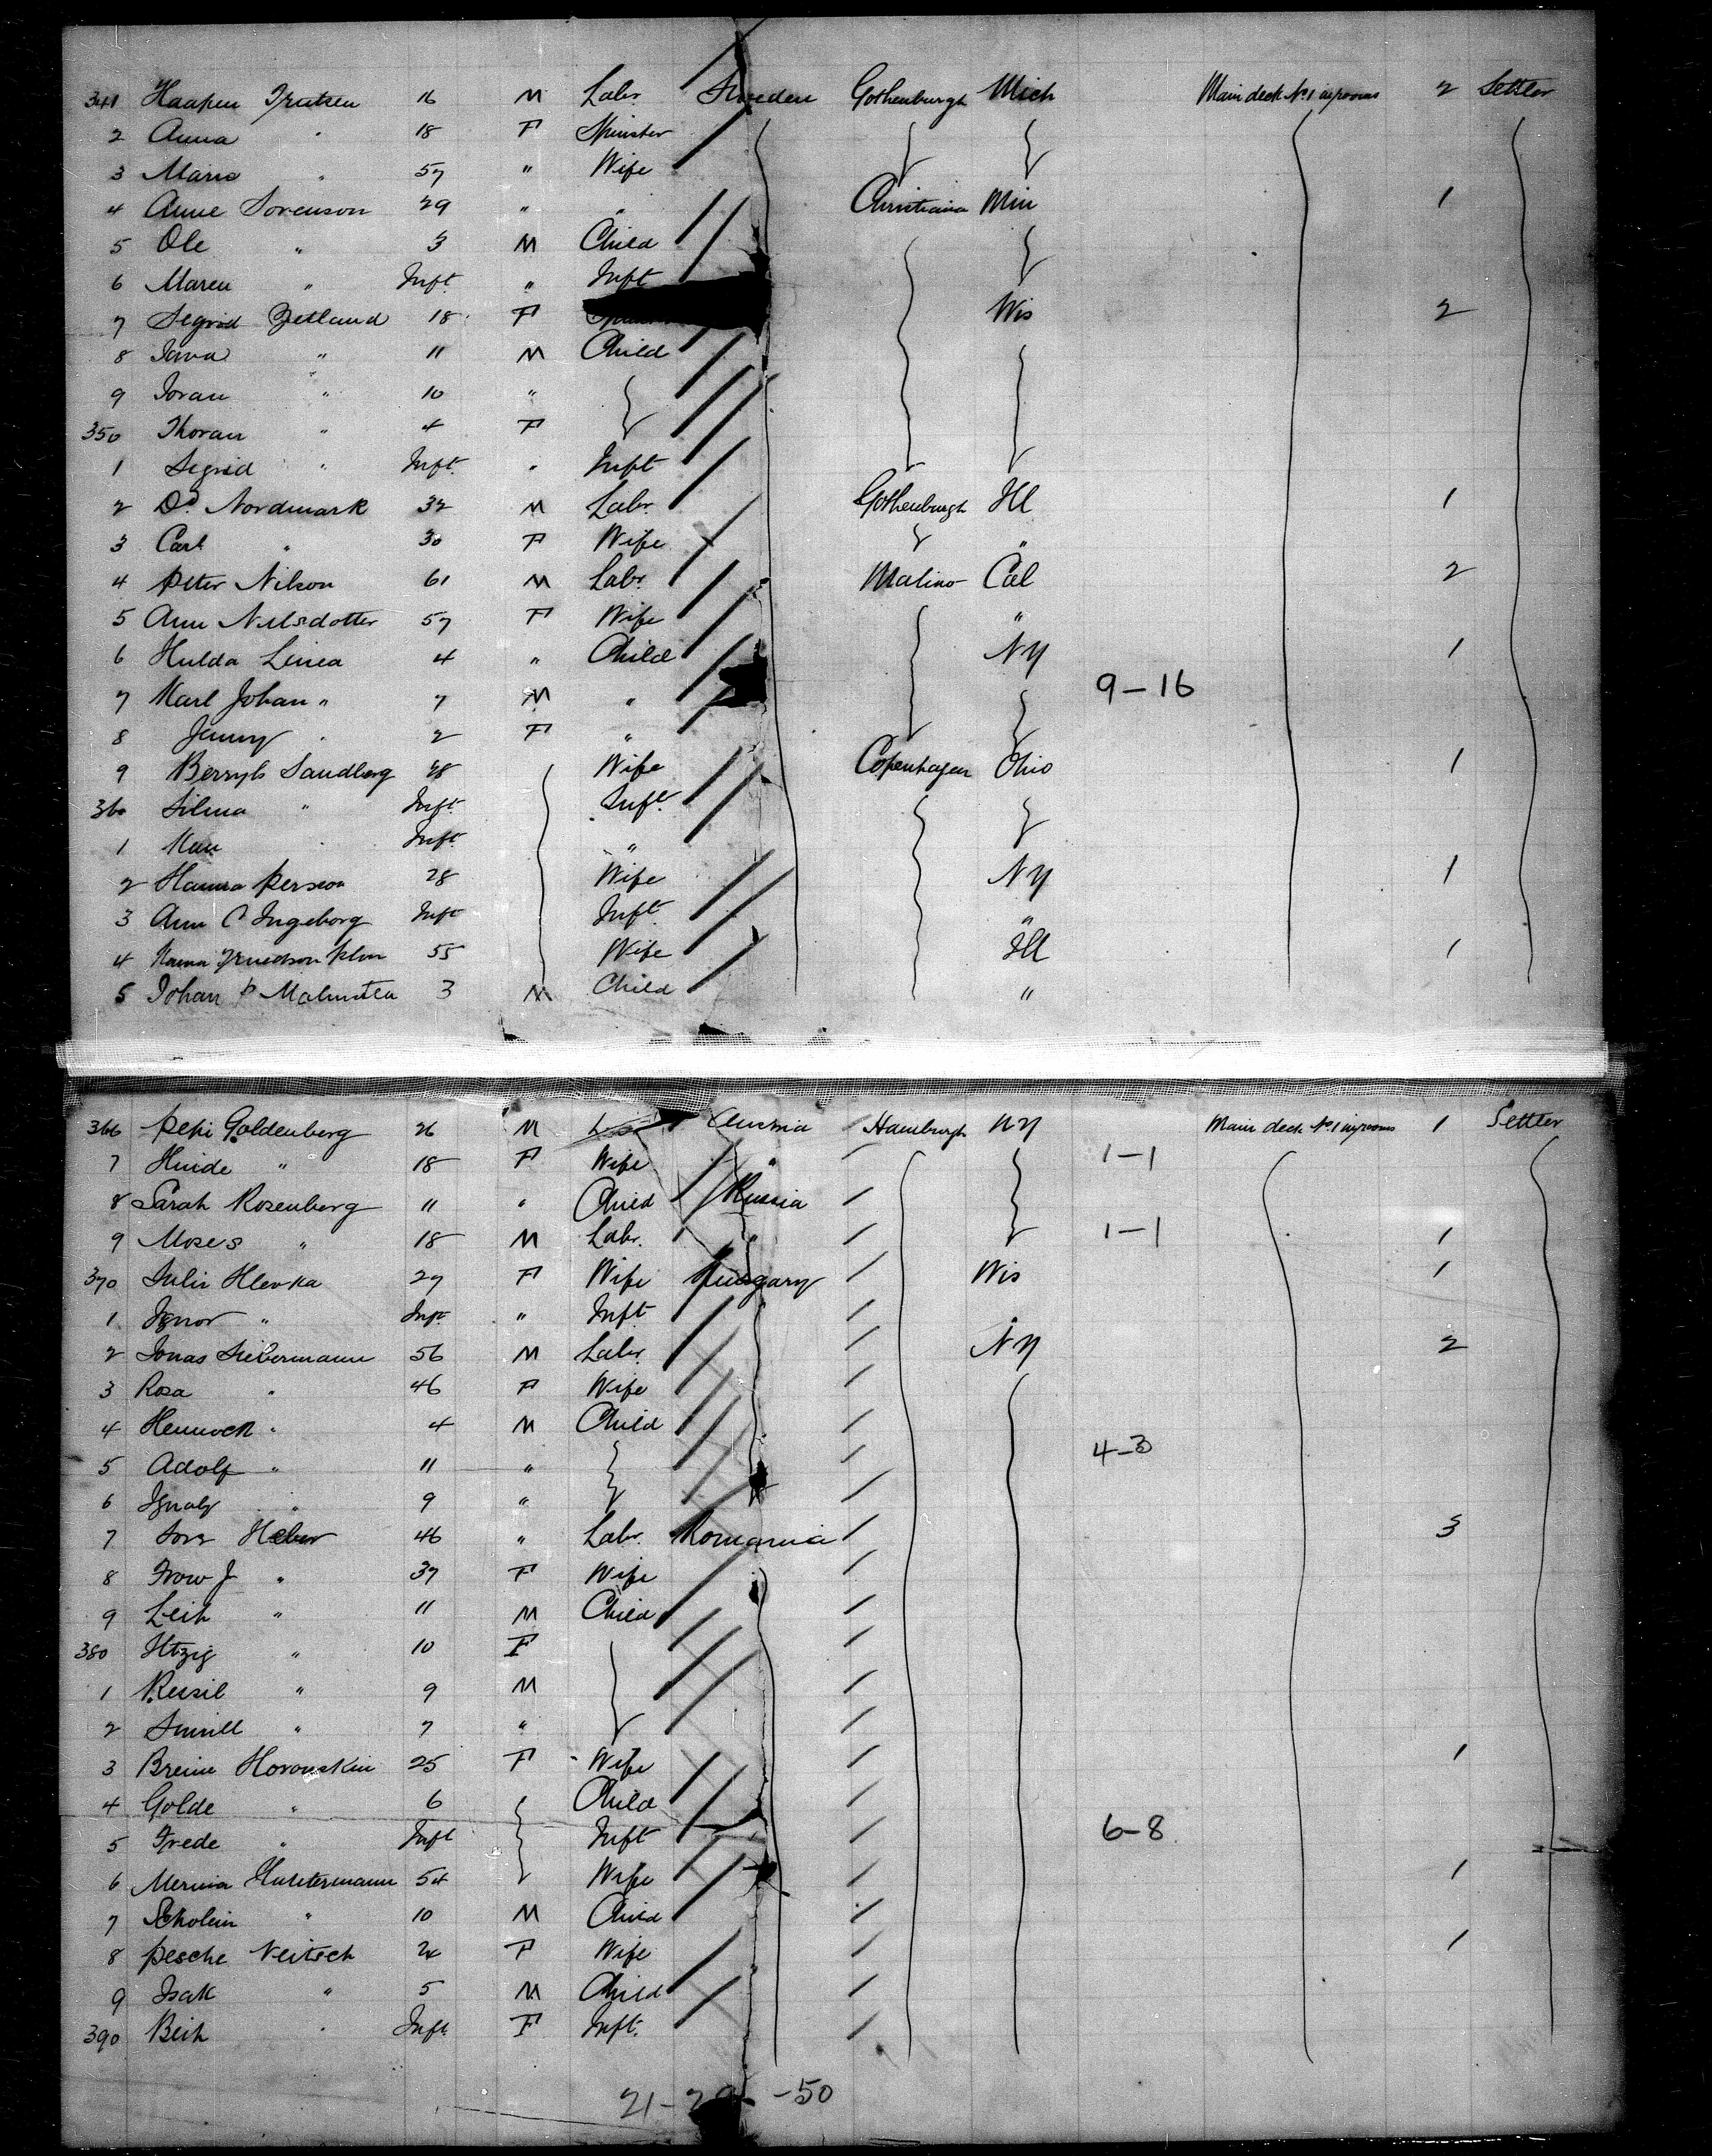 341 Haaken Trutsen 16 M Labr. Sweden Gothenburgh Mich Main deck No 1 2 Settler
2 Anna " 18 F Spinster
3 Maria " 57 " Wife
4 Anne Sorenson 29 " " Christiana Min 1
5 Ole " 3 M Child
6 Maren " Inft. " Inft
7 Segrid 18 F Wis 2
8 " 11 M Child
9 Joran " 10 "
350 Thoran " 4 F
1 Segrid " Inft. " Inft
2 Do. Nordmark 32 M Labr. Gothenburgh Ill 1
3 Carl " 30 F Wife "
4 Peter Nilson 61 M Labr. Malmo Cal 2
5 Ann Nilsdotter 57 F Wife "
6 Hulda Linea 4 " Child NY 1
7 Karl Johan " 7 M " 9-16
8 Jenny " 2 F "
9 Sandberg 48 Wife Copenhagen Ohio 1
360 Silma " Inft. Inft.
1 Inft. "
2 Hanna Person 28 Wife NY 1
3 Ann C Ingeborg Inft Inft. "
4 55 Wife Ill 1
5 Johan P 3 M Child "
366 Pepi Goldenberg 26 M Austria Hamburgh NY Main deck No 1 1 Settler
7 Hinde " 18 F Wife " 1-1
8 Sarah Rosenberg 11 " Child Russia
9 Moses " 18 M Labr. " 1-1 1
370 Julie Hlevka 27 F Wife Hungary Wis 1
1 Ignor " Inft. " Inft
2 Jonas Liebermann 56 M Labr. NY 2
3 Rosa " 46 F Wife
4 " 4 M Child 4-3
5 Adolf " 11 "
6 Ignatz " 9 "
7 Heber 46 " Labr. Romania 3
8 Frow J " 37 F Wife
9 Leib " 11 M Child
380 Itzig " 10 F
1 Ressil " 9 M
2 " 7 "
3 Breine 25 F Wife 1
4 Golde " 6 Child
5 Frede " Inft Inft 6-8
6 54 Wife 1
7 Scholem " 10 M Child
8 Pesche Neitsch 24 F Wife 1
9 Isak " 5 M Child
390 " Inft. F Inft.
21-29 -50